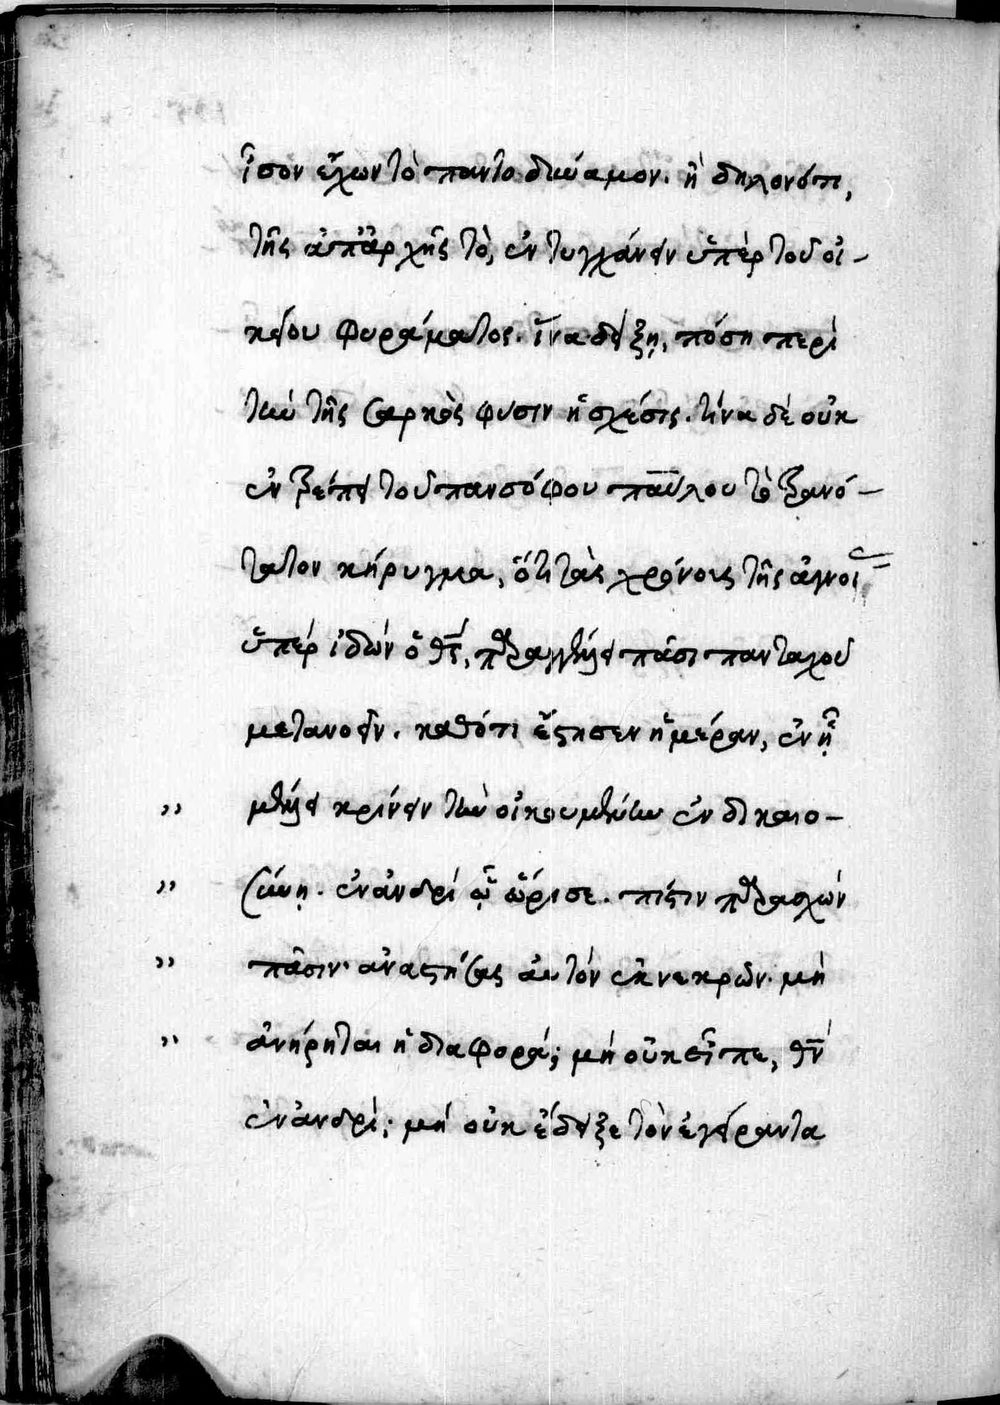 ἴσον ἔχων τὸ παντοδύναμον. ἢ δηλονότι,
τῆς ἀπαρχῆς τὸ, ἐντυγχάνειν ὑπὲρ τοῦ οἰ-
κείου φυράματος. ἵνα δείξῃ, πόση περὶ
τὴν τῆς σαρκὸς φύσιν ἡ σχέσις. τίνα δὲ οὐκ
ἐντρέπει τοῦ πανσόφου παύλου τὸ τρανό-
τατον κήρυγμα, ὅτι τὰς χρόνους τῆς ἀγνοί
ὑπεριδὼν ὁ θς, παραγγέλλει πᾶσι πανταχοῦ
μετανοεῖν. καθότι ἔστησεν ἡμέραν, ἐν ᾗ
” μέλλει κρίνειν τὴν οἰκουμένην ἐν δικαιο-
” σύνῃ. ἐν ἀνδρὶ ᾧ ὥρισε. πίστιν παρασχὼν
” πᾶσιν· ἀναστήσας αὐτὸν ἐκ νεκρῶν. μὴ
” ἀνῄρηται ἡ διαφορά; μὴ οὐκ εἶπε, θν
ἐν ἀνδρὶ; μὴ οὐκ ἔδειξε τὸν ἐγείραντα